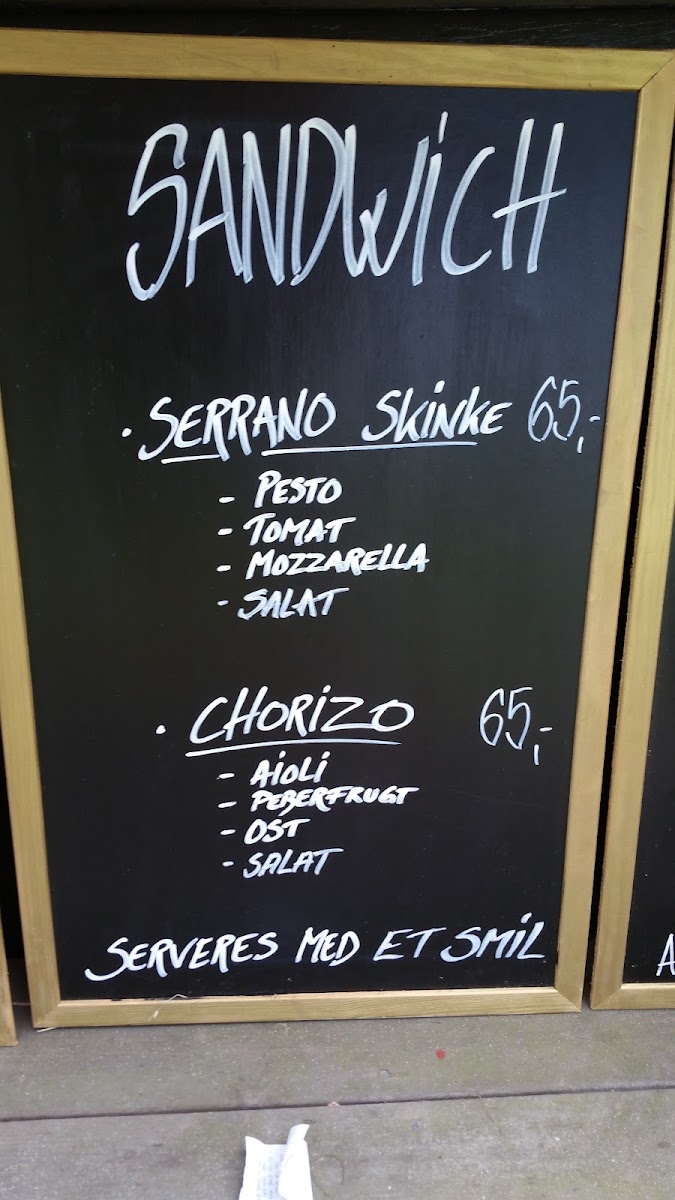 SANDWiCH
· SERRANO SKiNKE 65,-
- PESTO
- TOMAT
- MOZZARELLA
- SALAT
· CHORiZO 65,-
- AiOLi
- PEBERFRUGT
- OST
- SALAT
SERVERES MED ET SMiL
A